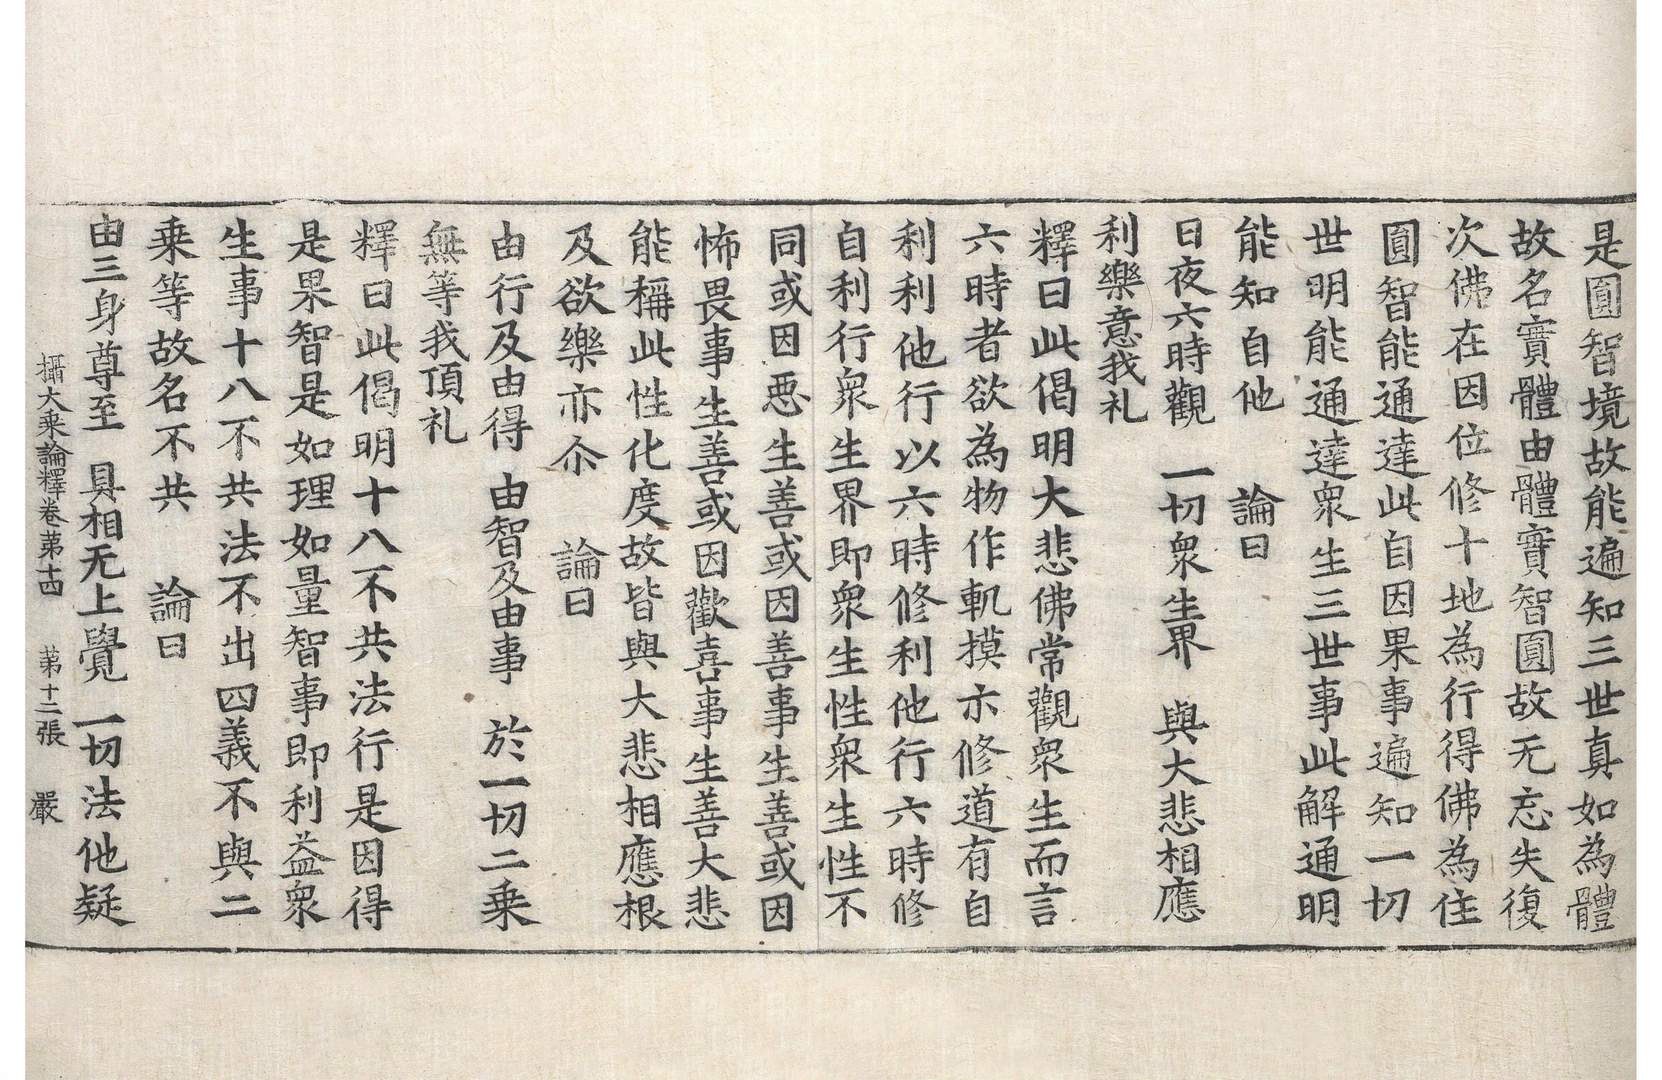 是圓智境故能遍知三世真如為體
故名實體由體實智圓故无忘失復
次佛在因位修十地為行得佛為住
圓智能通達此自因果事遍知一切
世明能通達衆生三世事此解通明
能知自他　論曰
日夜六時觀　一切衆生界　與大悲相應
利樂意我礼
釋曰此偈明大悲佛常觀衆生而言
六時者欲為物作軌摸亦修道有自
利利他行以六時修利他行六時修
自利行衆生界即衆生性衆生性不
同或因惡生善或因善事生善或因
怖畏事生善或因歡喜事生善大悲
能稱此性化度故皆與大悲相應根
及欲樂亦尒　論曰
由行及由得　由智及由事　於一切二乗
無等我頂礼
釋曰此偈明十八不共法行是因得
是果智是如理如量智事即利益衆
生事十八不共法不出四義不與二
乗等故名不共　論曰
由三身尊至　具相无上覺　一切法他疑
攝大乗論釋卷苐十四　苐十二張　嚴